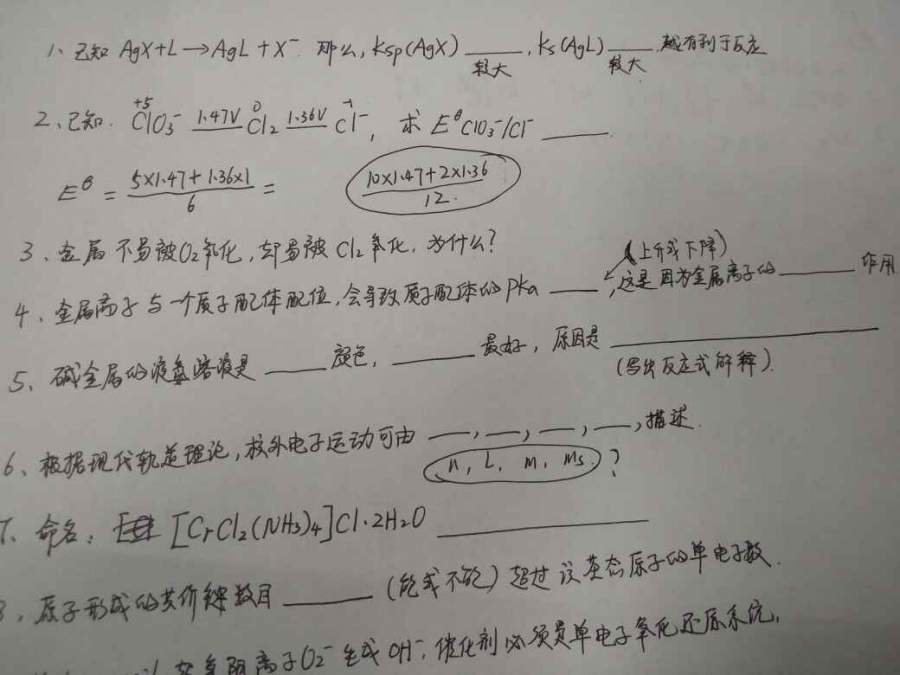 1、已知 AgX+L→AgL+X⁻. 那么, Ksp(AgX) ____, Ks(AgL) ____ 越有利于反应
较大 较大
2、已知. ClO₃⁻ 1.47V Cl₂ 1.36V Cl⁻, 求 E^θ ClO₃⁻/Cl⁻ ____
+5 0 -1
E^θ = (5×1.47+1.36×1)/6 = (10×1.47+2×1.36)/12.
3、金属 不易被O₂氧化, 却易被 Cl₂氧化. 为什么?
(上升或下降)
4、金属离子与一个质子配体配位, 会导致质子配体的 PKa ____, 这是因为金属离子的 ____ 作用
5、碱金属的液氨溶液是 ____ 颜色, ____ 最好, 原因是 ____
(写出反应式解释).
6、根据现代轨道理论, 核外电子运动可由 __, __, __, __, 描述.
n, L, m, ms ?
7. 命名: [CrCl₂(NH₃)₄]Cl·2H₂O ____
8, 原子形成的共价键数目 ____ (能或不能) 超过该基态原子的单电子数.
阴离子O₂⁻生成 OH⁻, 催化剂必须是单电子氧化还原系统,